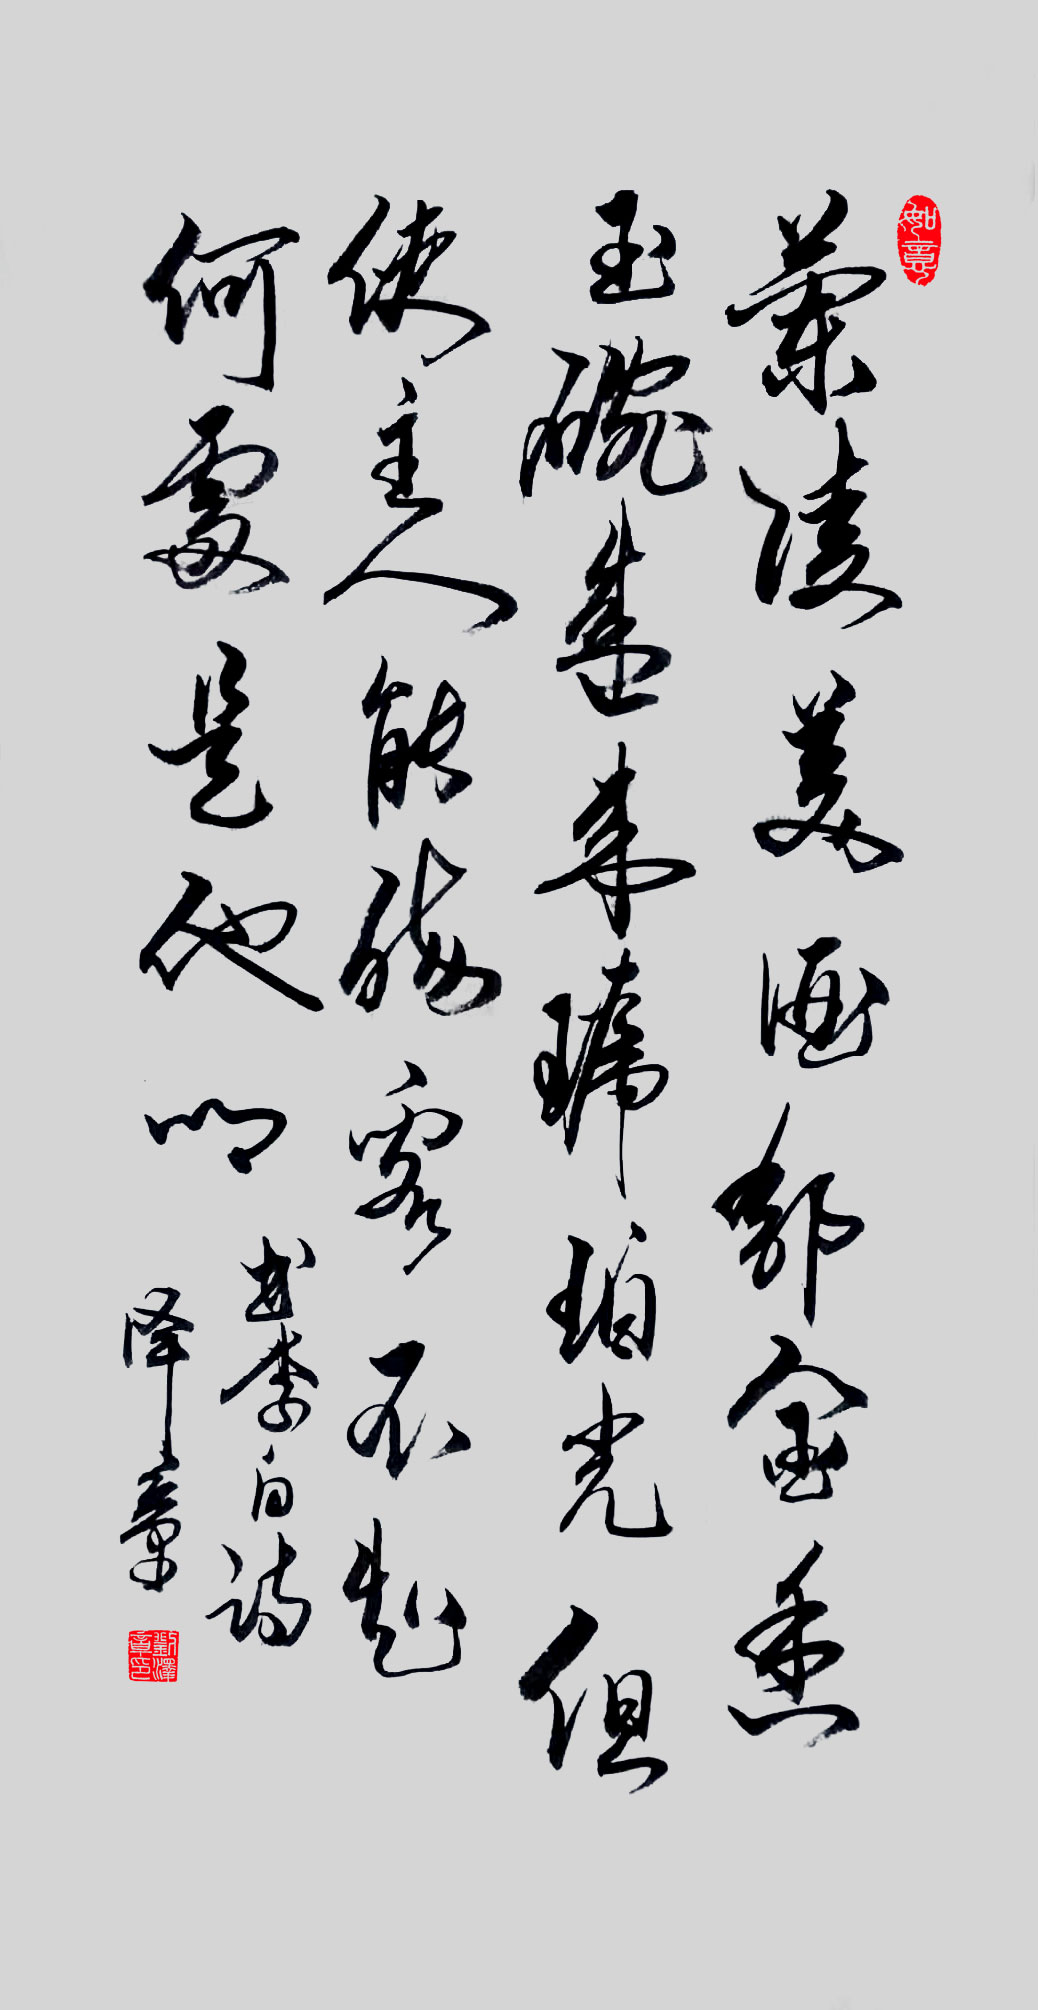 如意
蘭陵美酒郁金香
玉碗盛来琥珀光但
使主人能醉客不知
何處是他鄉
书李白诗
泽章
劉澤章印